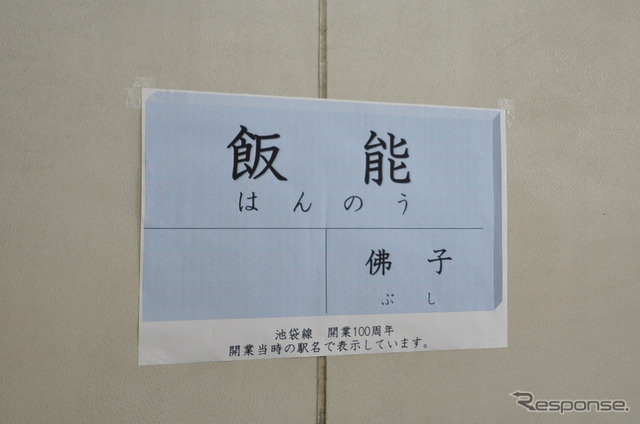 飯能
はんのう
佛子
ぶし
池袋線 開業100周年
開業当時の駅名で表示しています。
Response.